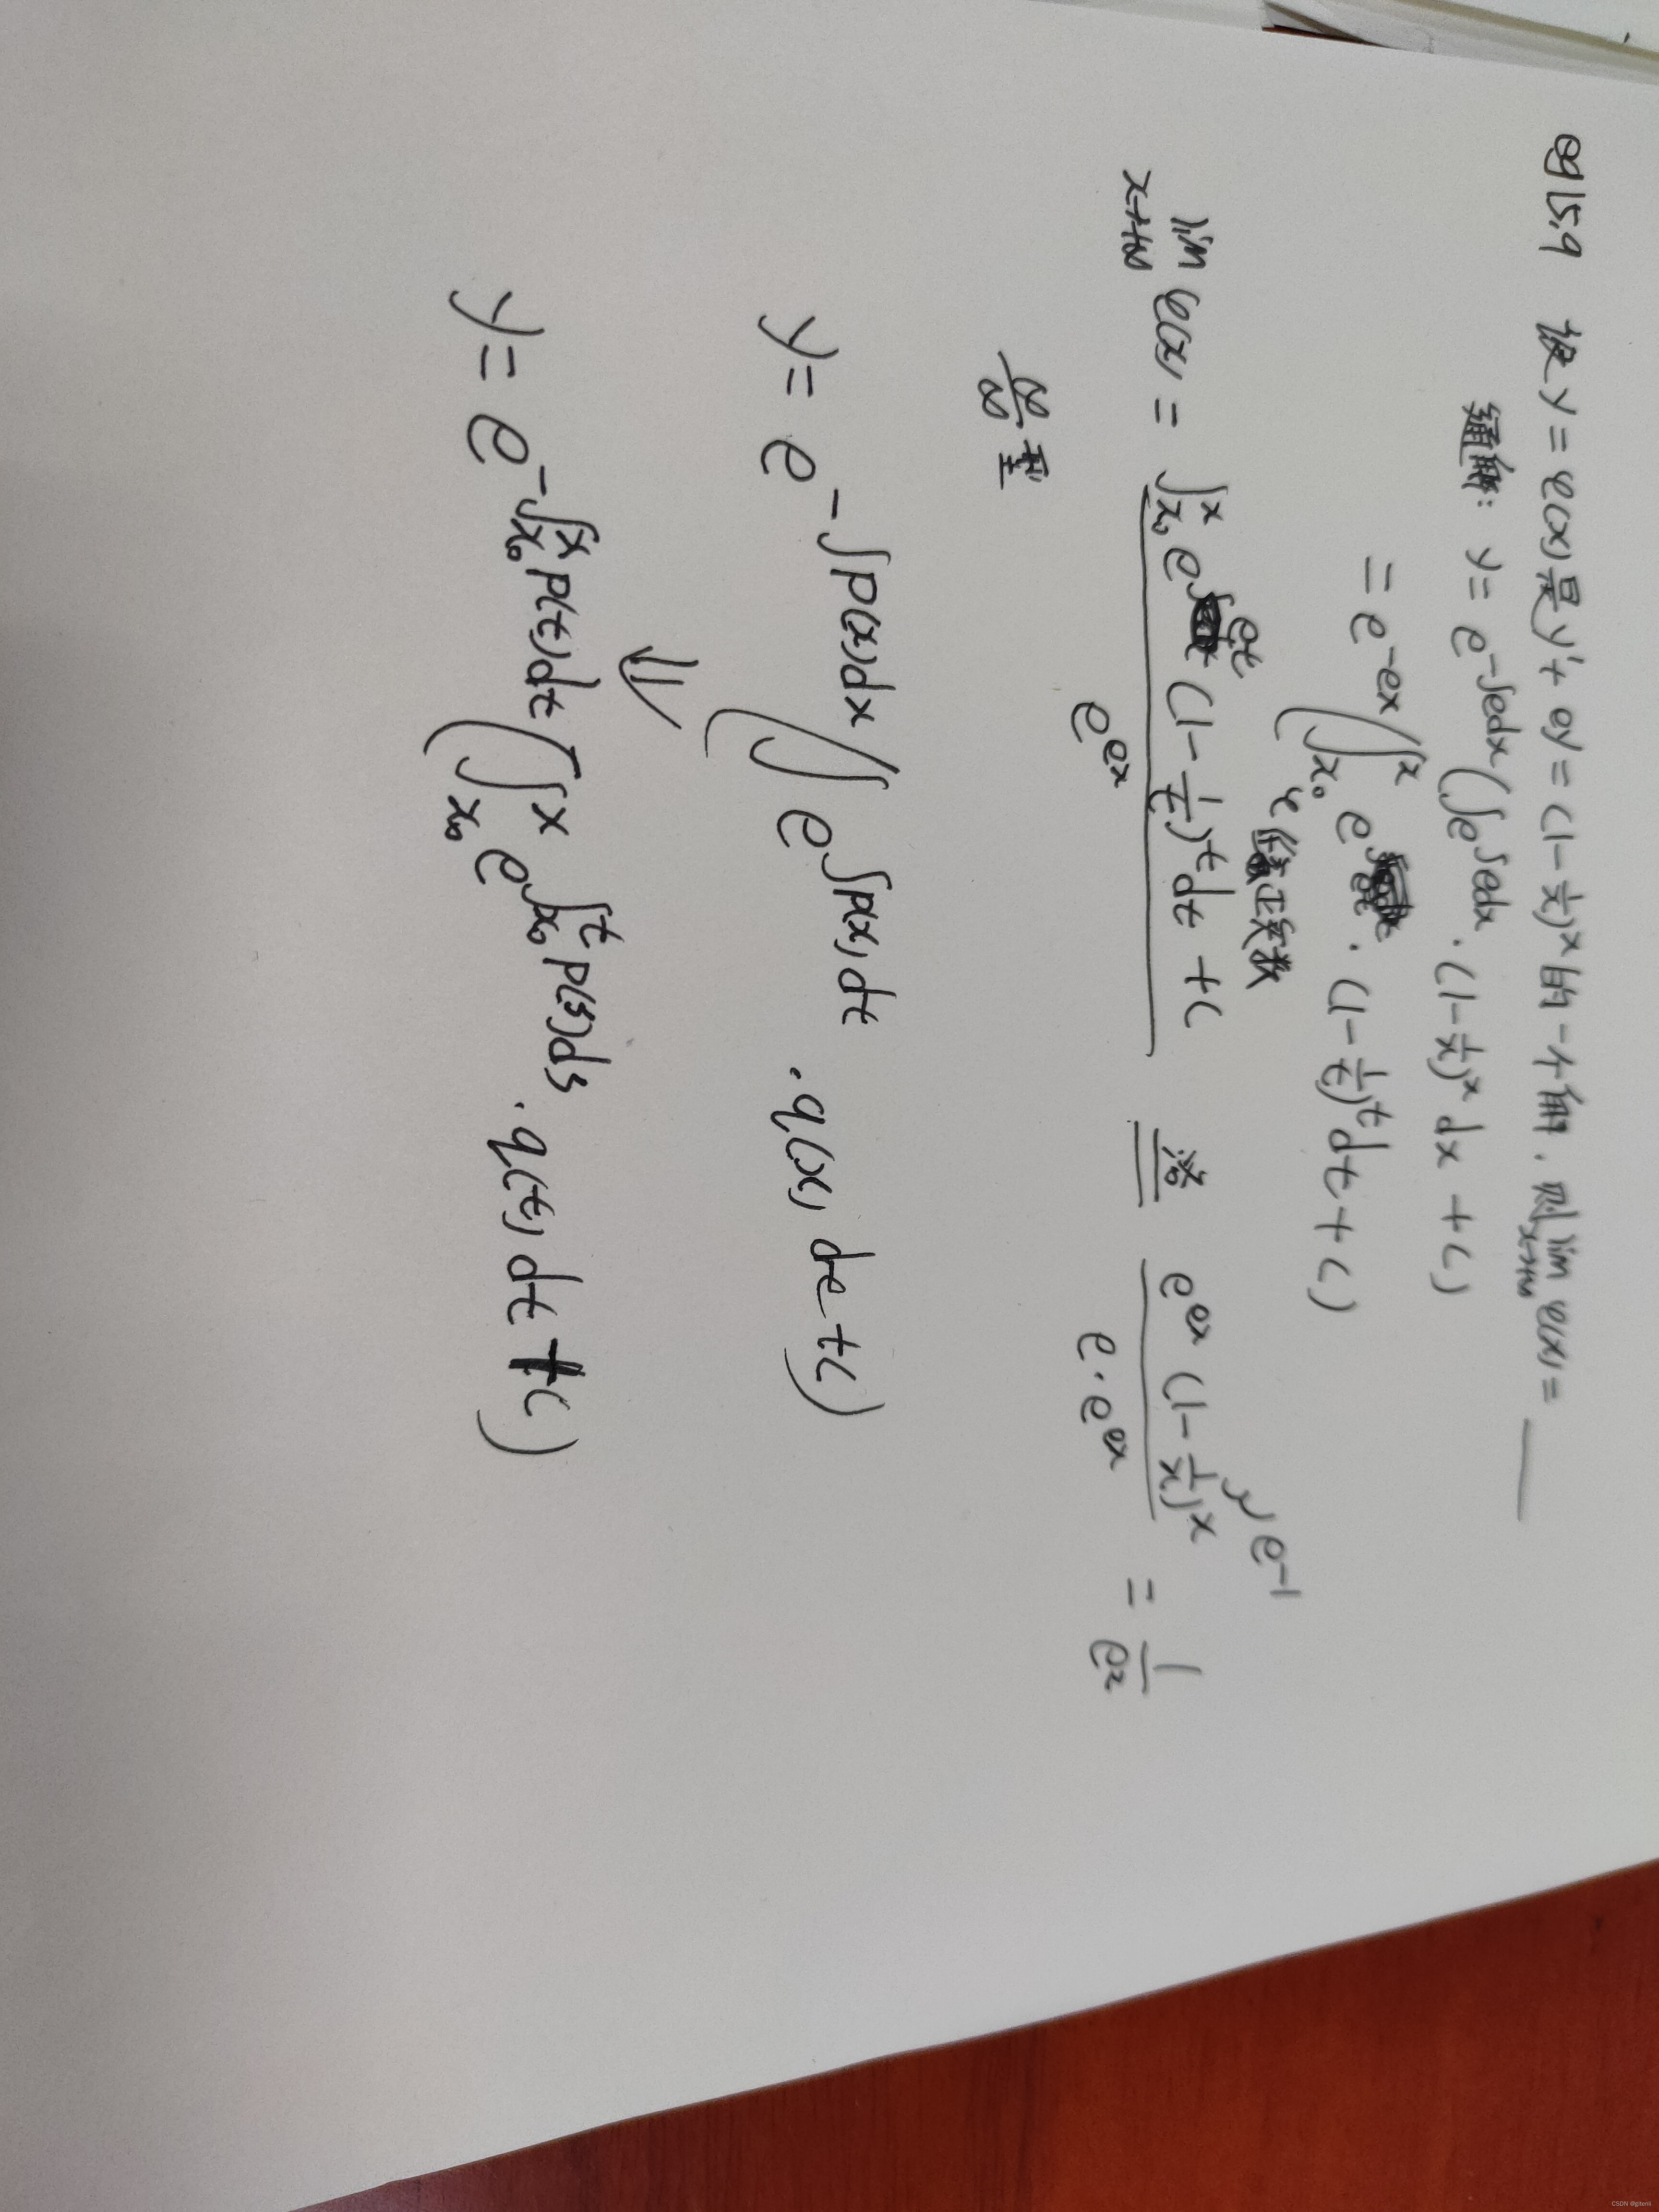 eg15.9 设 y = φ(x) 是 y' + ey = (1 - 1/x)^x 的一个解. 则 lim_{x→+∞} φ(x) = ___
通解: y = e^{-∫edx} (∫e^{∫edx} · (1 - 1/x)^x dx + C)
= e^{-ex} (∫_{x₀}^{x} e^{et} · (1 - 1/t)^t dt + C)
正实数
lim_{x→+∞} φ(x) = \frac{∫_{x₀}^{x} e^{et} (1 - 1/t)^t dt + C}{e^{ex}} 洛 \frac{e^{ex} (1 - 1/x)^x}{e · e^{ex}} = \frac{1}{e²}
e^{-1}
∞/∞ 型
y = e^{-∫p(x)dx} (∫ e^{∫p(x)dt} · q(x) dt + C)
⇓
y = e^{-∫_{x₀}^{x} p(t)dt} (∫_{x₀}^{x} e^{∫_{x₀}^{t} p(s)ds} · q(t) dt + C)
CSDN @gllenli